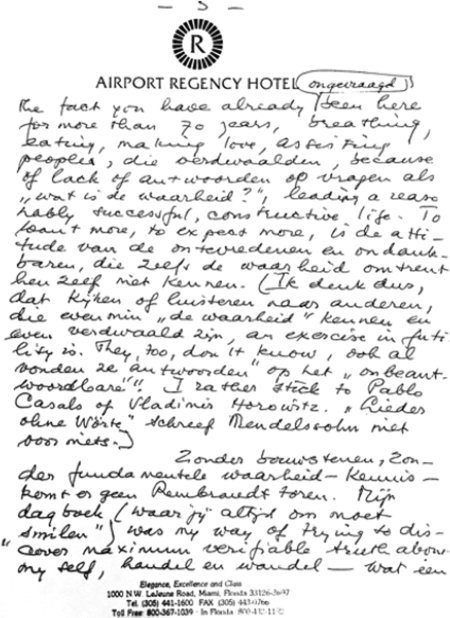 — 5 —
R
AIRPORT REGENCY HOTEL (ongevraagd)
The fact you have already been here
for more than 70 years, breathing,
eating, making love, assisting
peoples, die verdwaalden, because
of lack of antwoorden op vragen als
„wat is de waarheid?", leading a reaso
nably successful, constructive life. To
want more, to expect more, is de atti-
tude van de ontevredenen en ondank-
baren, die zelfs de waarheid omtrent
hen zelf niet kennen. (Ik denk dus,
dat kijken of luisteren naar anderen,
die evenmin „de waarheid" kennen en
even verdwaald zijn, an exercise in futi-
lity is. They, too, don't know, ook al
vonden ze „antwoorden" op het „onbeant-
woordbare"". I rather stick to Pablo
Casals of Vladimir Horowitz. „Lieder
ohne Wörte" schreef Mendelssohn niet
voor niets.)
Zonder bouwstenen, zon-
der fundamentele waarheid-kennis-
komt er geen Rembrandt toren. Mijn
dagboek („waar jij altijd om moet
smilen") was my way of trying to dis-
cover maximum verifiable truth about
my self, handel en wandel — wat een
Elegance, Excellence and Class
1000 N.W. LeJeune Road, Miami, Florida 33126-3697
Tel. (305) 441-1600 FAX (305) 443-0766
Toll Free: 800-367-1039 In Florida 800-432-